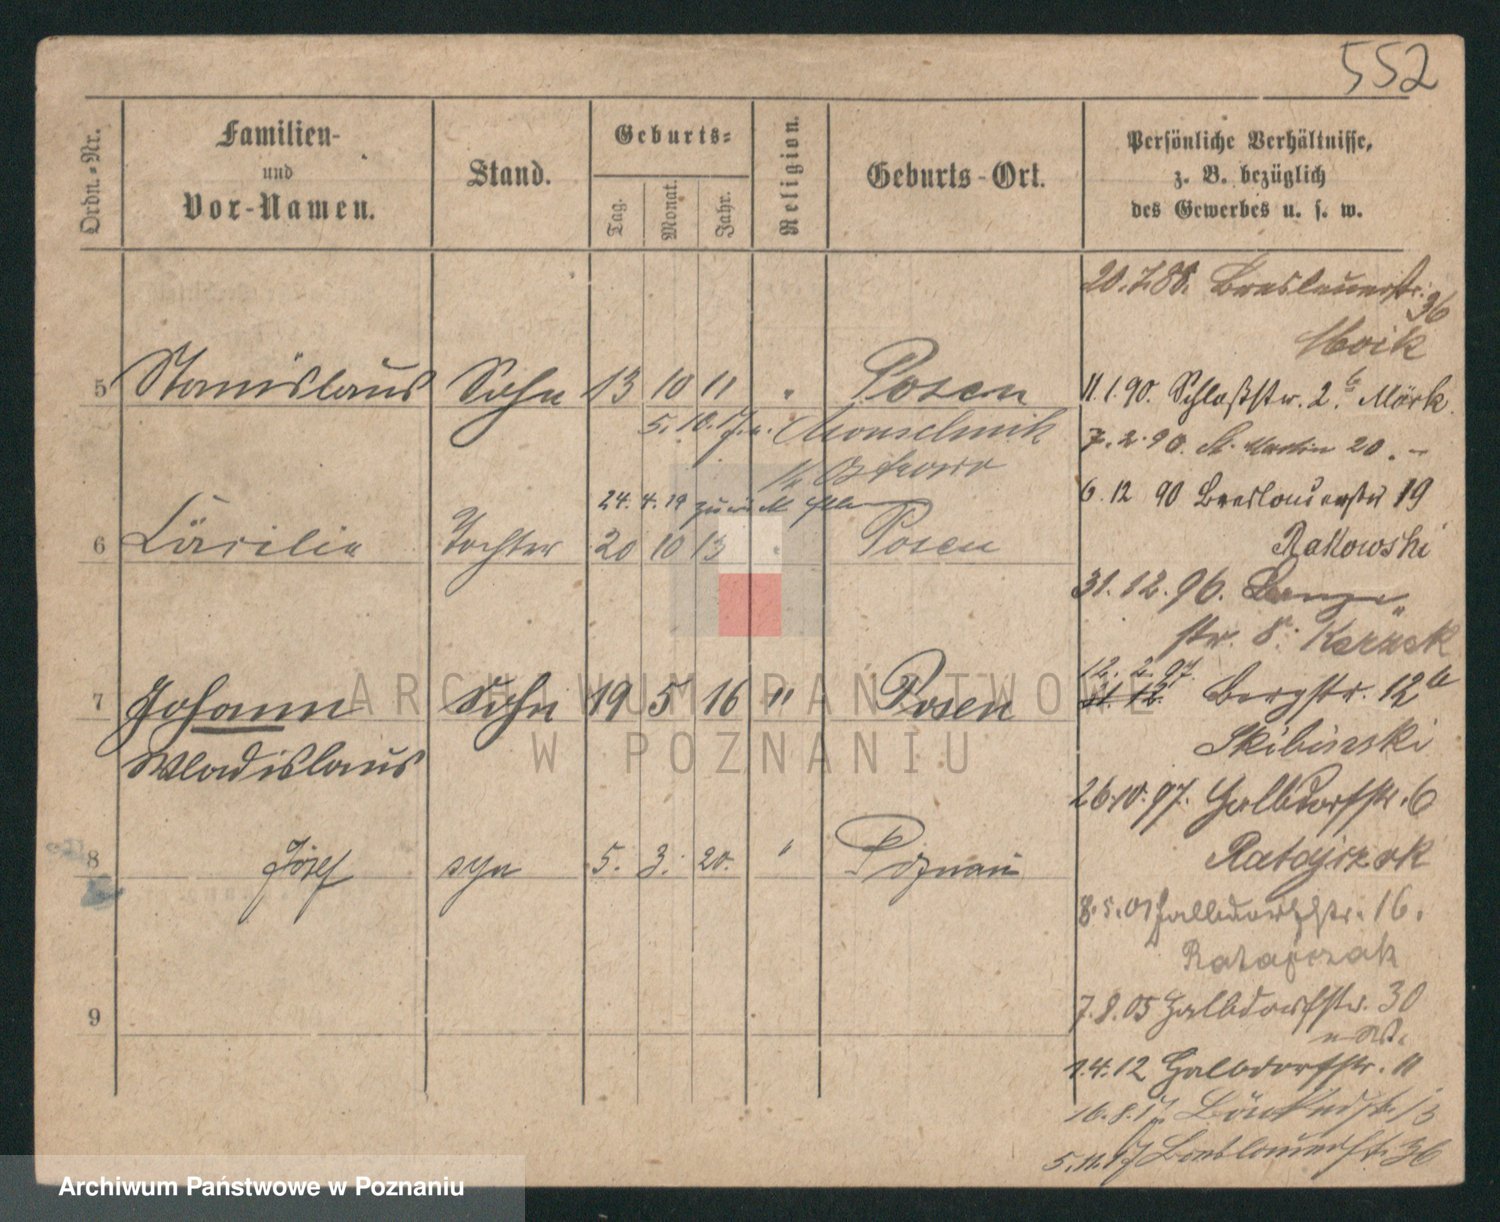 552
Ordn.-Nr.
Familien-
und
Vor-Namen.
Stand.
Geburts-
Tag.
Monat.
Jahr.
Religion.
Geburts-Ort.
Persönliche Verhältnisse,
z. B. bezüglich
des Gewerbes u. s. w.
20.7.88. Breslauerstr. 36
5 Stanislaus Sohn 13 10 11 " Posen
11.1.90. Schloßstr. 2 b. Märk
5.10.17
7.2.90. St. Martin 20. –
6.12 90 Breslauerstr 19
24.4.19 zurück
6 Cäcilie Tochter 20 10 13 " Posen
Rakowski
31.12.96. Lange
str. 8.
12.2.97.
11.12.
7 Johann Sohn 19 5 16 " Posen
Bergstr. 12 b
Wladislaus
Skibinski
26.10.97. Halbdorfstr. 6
8 Józef syn 5. 3. 20. " Poznań
Ratajczak
8.5.01 Halbdorfstr. 16.
Ratajczak
7.8.05 Halbdorfstr. 30
9
1.4.12 Halbdorfstr. 11
16.8.17
5.11.17 Breslauerstr. 36
ARCHIWUM PAŃSTWOWE
W POZNANIU
Archiwum Państwowe w Poznaniu